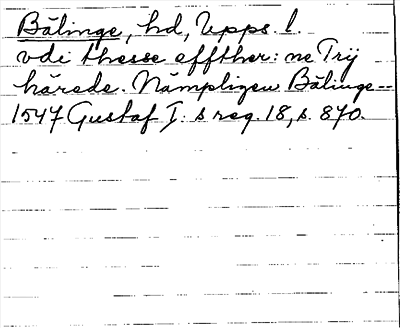 Bälinge, hd, Upps. l.
vdi thesse effther: ne Trij
härede. Nämpligen Bälinge --
1547 Gustaf I: s reg. 18, s. 870.